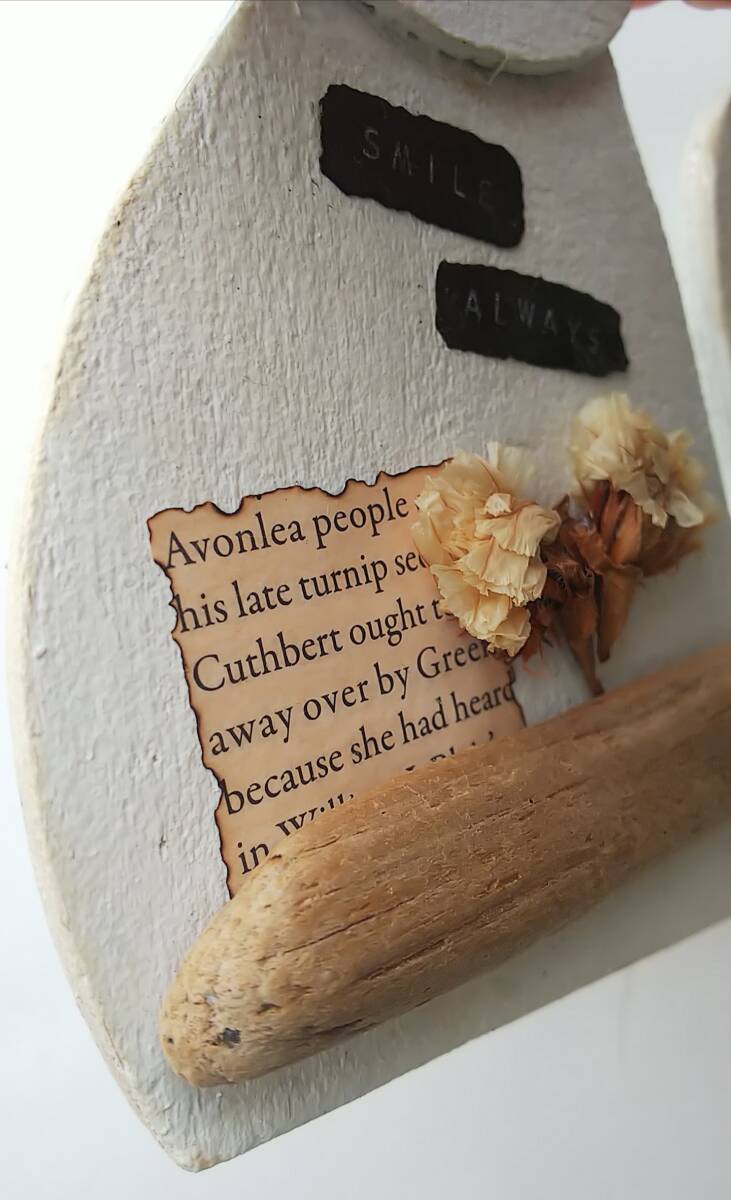 SMILE
ALWAYS
Avonlea people
his late turnip
Cuthbert ought
away over by
because she had heard
in